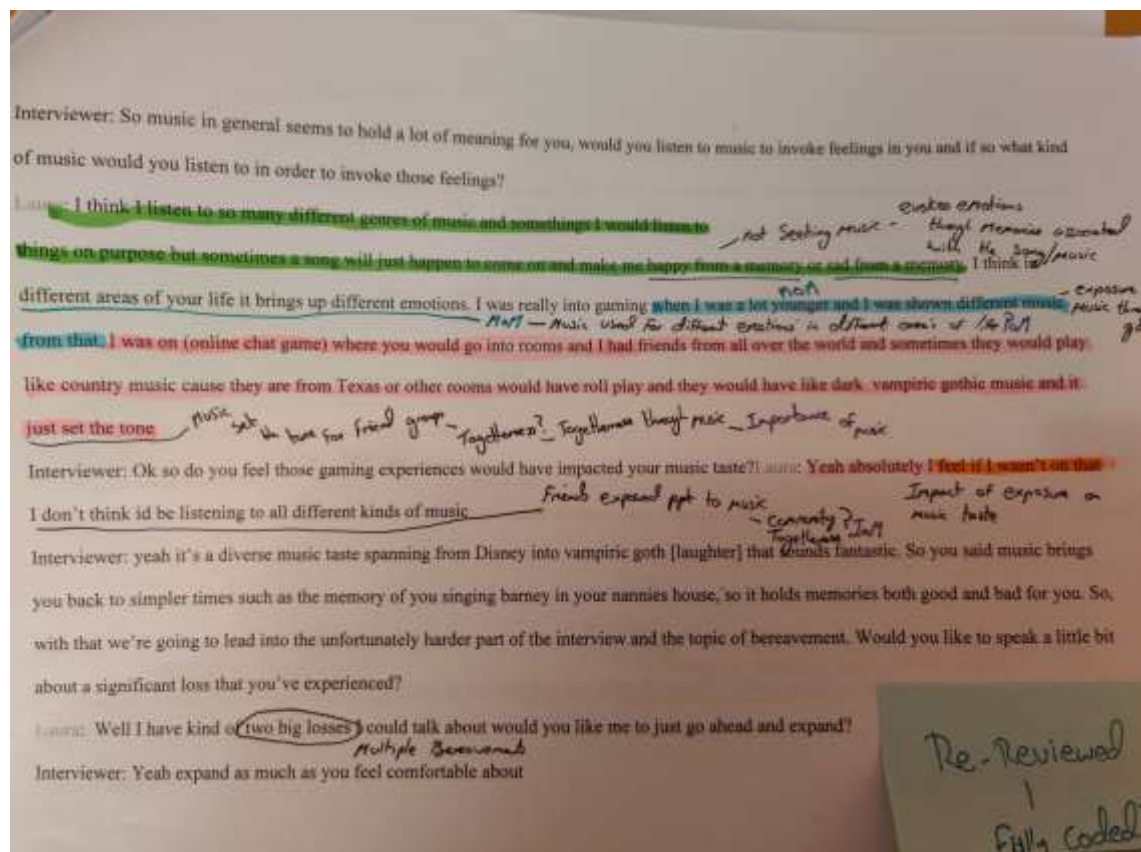 Interviewer: So music in general seems to hold a lot of meaning for you, would you listen to music to invoke feelings in you and if so what kind
of music would you listen to in order to invoke those feelings?
: I think I listen to so many different genres of music and somethings I would listen to
evokes emotions
not seeking music - though memories associated
with the song/music
things on purpose but sometimes a song will just happen to come on and make me happy from a memory or sad from a memory. I think in
different areas of your life it brings up different emotions. I was really into gaming when I was a lot younger and I was shown different music
- exposure
music
MoM - Music used for different emotions in different areas of life
from that. I was on (online chat game) where you would go into rooms and I had friends from all over the world and sometimes they would play
like country music cause they are from Texas or other rooms would have roll play and they would have like dark vampiric gothic music and it
just set the tone
Music set the tone for friend group - Togetherness? - Togetherness though music - Importance of music
Interviewer: Ok so do you feel those gaming experiences would have impacted your music taste? : Yeah absolutely I feel if I wasn't on that
I don't think id be listening to all different kinds of music
Friends exposed ppt to music
- Community?
Togetherness
Impact of exposure on
music taste
Interviewer: yeah it's a diverse music taste spanning from Disney into vampiric goth [laughter] that sounds fantastic. So you said music brings
you back to simpler times such as the memory of you singing barney in your nannies house, so it holds memories both good and bad for you. So,
with that we're going to lead into the unfortunately harder part of the interview and the topic of bereavement. Would you like to speak a little bit
about a significant loss that you've experienced?
: Well I have kind of two big losses I could talk about would you like me to just go ahead and expand?
Multiple Bereavements
Interviewer: Yeah expand as much as you feel comfortable about
Re-Reviewed
Fully Coded